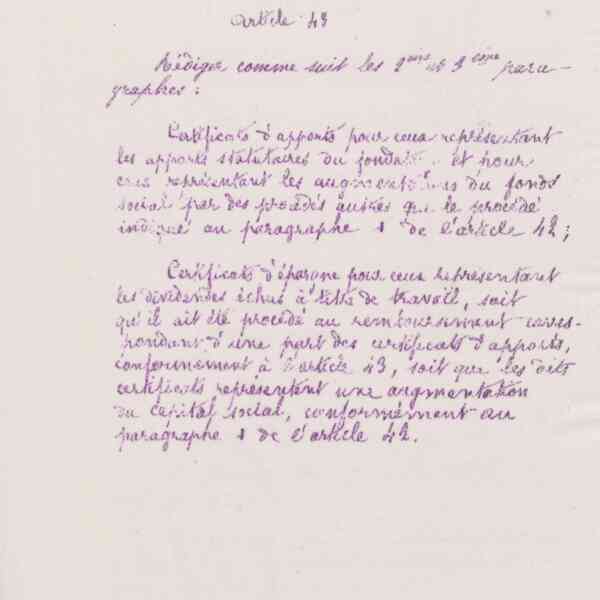 Article 43
Rédiger comme suit les 2ème et 3ème para-
graphes :
Certificats d'apports pour ceux représentant
les apports statutaires du et pour
ceux représentant les augmentations du fonds
social par des procédés autres que le procédé
indiqué au paragraphe 1 de l'article 42;
Certificats d'épargne pour ceux représentant
les dividendes échus à titre de travail, soit
qu'il ait été procédé au remboursement corres-
pondant d'une part des certificats d'apports,
conformément à l'article 43, soit que les dits
certificats représentent une augmentation
du capital social, conformément au
paragraphe 1 de l'article 42.